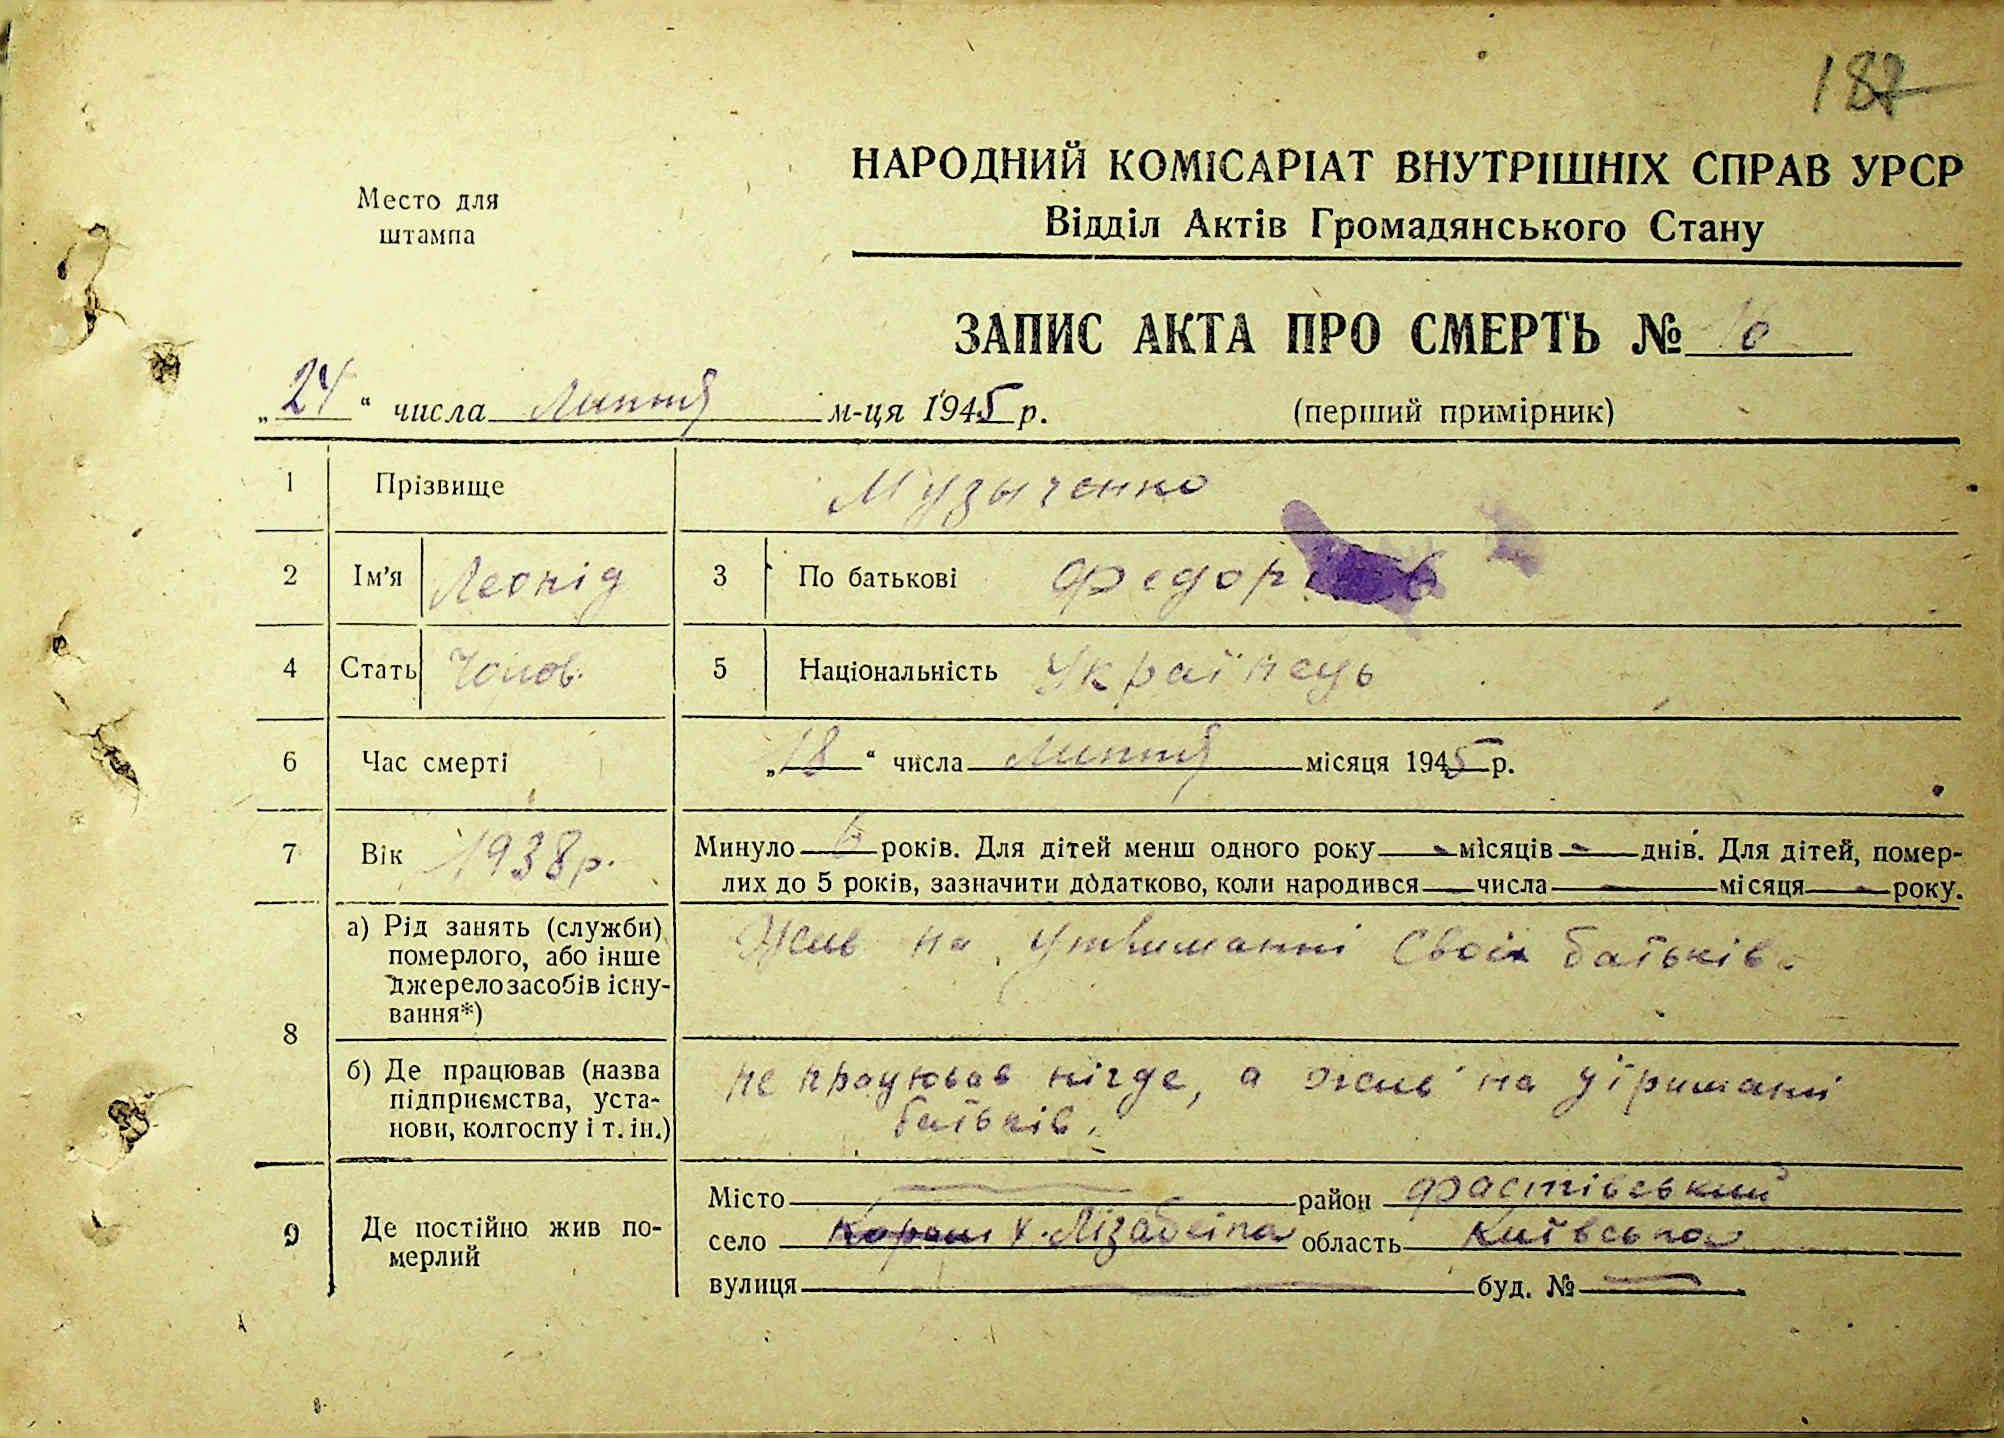 187
Место для
штампа
НАРОДНИЙ КОМІСАРІАТ ВНУТРІШНІХ СПРАВ УРСР
Відділ Актів Громадянського Стану
ЗАПИС АКТА ПРО СМЕРТЬ № 10
„24“ числа Липня м-ця 1945 р.
(перший примірник)
1 Прізвище Музыченко
2 Ім’я Леонід 3 По батькові Федор
4 Стать Чолов. 5 Національність Українець
6 Час смерті „18“ числа Липня місяця 1945 р.
7 Вік 1938 р. Минуло 6 років. Для дітей менш одного року - місяців - днів. Для дітей, помер-
лих до 5 років, зазначити додатково, коли народився — числа — місяця — року.
8 а) Рід занять (служби)
померлого, або інше
джерело засобів існу-
вання*)
Жив на утвиманні своїх батьків.
б) Де працював (назва
підприємства, уста-
нови, колгоспу і т. ін.)
не працював нігде, а жив на утриманні
батьків.
9 Де постійно жив по-
мерлий
Місто — район Фастівський
село х. Лізабеівка область Київська
вулиця — буд. № —